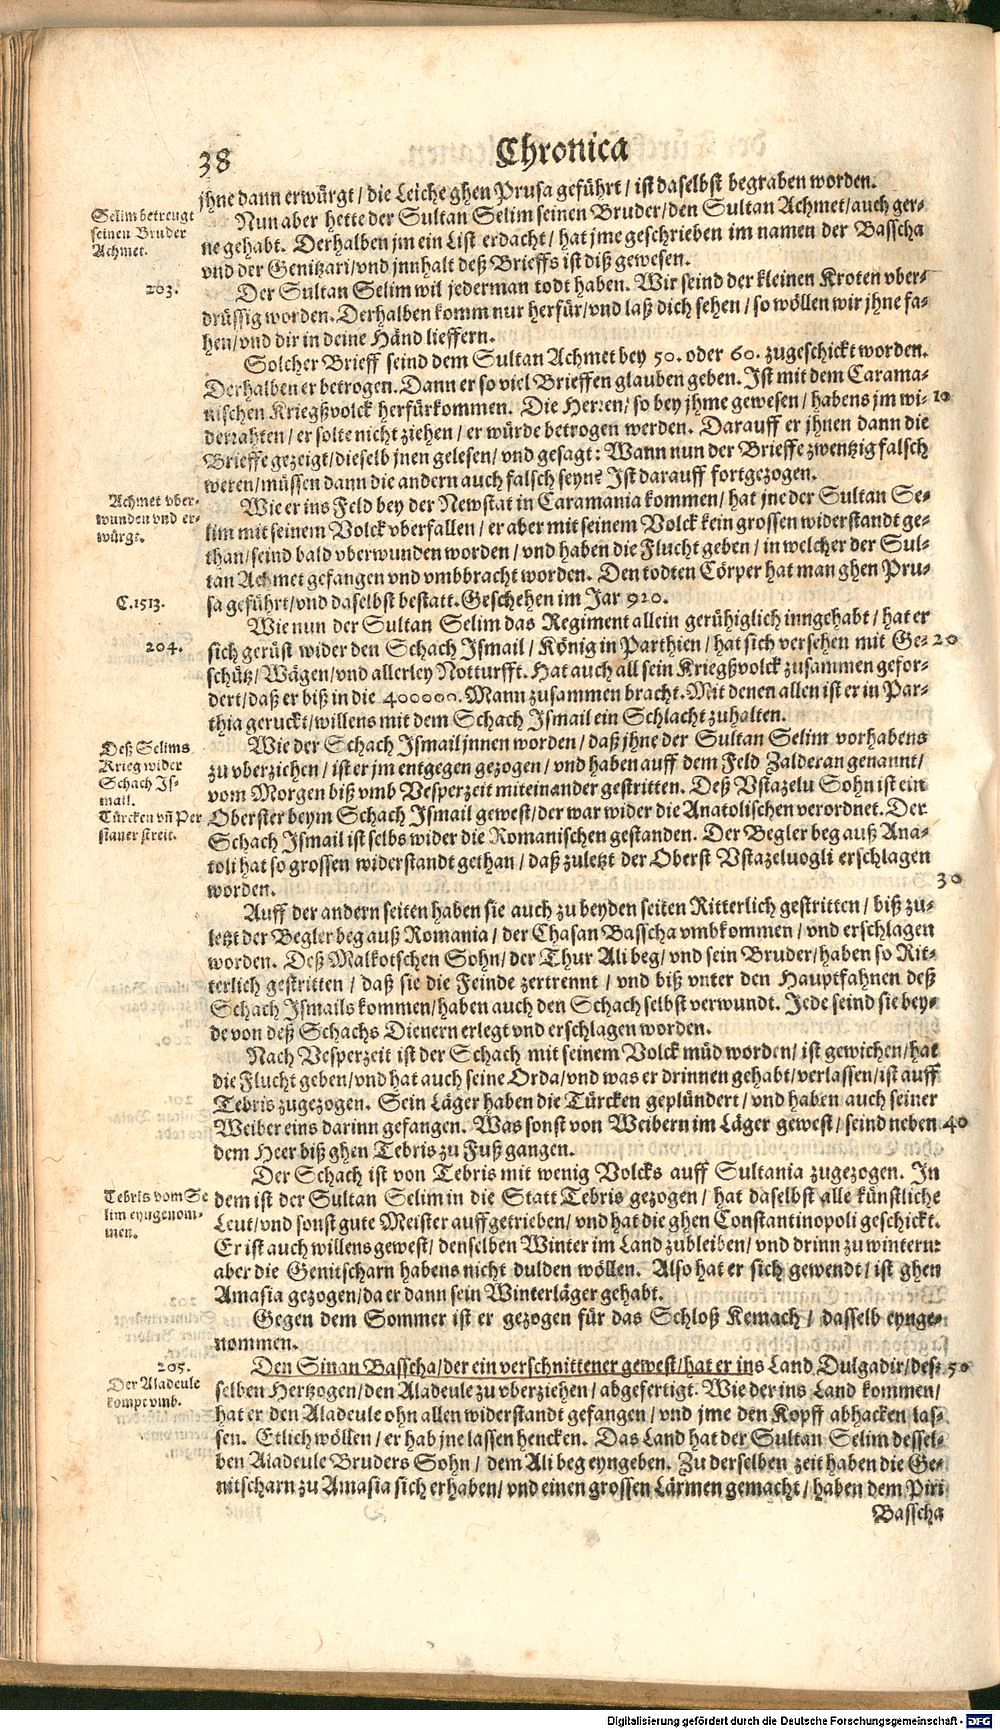 38 Chronica
jhne dann erwürgt / die Leiche ghen Prusa geführt / ist daselbst begraben worden.
Selim betreugt
seinen Bruder
Achmet.
Nun aber hette der Sultan Selim seinen Bruder / den Sultan Achmet / auch ger-
ne gehabt. Derhalben jm ein List erdacht / hat jme geschrieben im namen der Basscha
vnd der Genitzari / vnd jnnhalt deß Brieffs ist diß gewesen.
203.
Der Sultan Selim wil jederman todt haben. Wir seind der kleinen Kroten vber-
drüssig worden. Derhalben komm nur herfür / vnd laß dich sehen / so wöllen wir jhne fa-
hen / vnd dir in deine Händ lieffern.
Solcher Brieff seind dem Sultan Achmet bey 50. oder 60. zugeschickt worden.
Derhalben er betrogen. Dann er so viel Brieffen glauben geben. Ist mit dem Carama-
nischen Kriegßvolck herfürkommen. Die Herren / so bey jhme gewesen / habens jm wi- 10
derrahten / er solte nicht ziehen / er würde betrogen werden. Darauff er jhnen dann die
Brieffe gezeigt / dieselb jnen gelesen / vnd gesagt: Wann nun der Brieffe zwentzig falsch
weren / müssen dann die andern auch falsch seyn? Ist darauff fortgezogen.
Achmet vber-
wunden vnd er-
würgt.
Wie er ins Feld bey der Newstat in Caramania kommen / hat jne der Sultan Se-
lim mit seinem Volck vberfallen / er aber mit seinem Volck kein grossen widerstandt ge-
than / seind bald vberwunden worden / vnd haben die Flucht geben / in welcher der Sul-
tan Achmet gefangen vnd vmbbracht worden. Den todten Cörper hat man ghen Pru-
C. 1513.
sa geführt / vnd daselbst bestatt. Geschehen im Jar 920.
Wie nun der Sultan Selim das Regiment allein gerühiglich inngehabt / hat er
204.
sich gerüst wider den Schach Ismail / König in Parthien / hat sich versehen mit Ge- 20
schütz / Wägen / vnd allerley Notturfft. Hat auch all sein Kriegßvolck zusammen gefor-
dert / daß er biß in die 400000. Mann zusammen bracht. Mit denen allen ist er in Par-
thia geruckt / willens mit dem Schach Ismail ein Schlacht zuhalten.
Deß Selims
Krieg wider
Schach Is-
mail.
Türcken vñ Per
sianer streit.
Wie der Schach Ismail jnnen worden / daß jhne der Sultan Selim vorhabens
zu vberziehen / ist er jm entgegen gezogen / vnd haben auff dem Feld Zalderan genannt /
vom Morgen biß vmb Vesperzeit miteinander gestritten. Deß Vstazelu Sohn ist ein
Oberster beym Schach Ismail gewest / der war wider die Anatolischen verordnet. Der
Schach Ismail ist selbs wider die Romanischen gestanden. Der Beglerbeg auß Ana-
toli hat so grossen widerstandt gethan / daß zuletzt der Oberst Vstazeluogli erschlagen
worden. 30
Auff der andern seiten haben sie auch zu beyden seiten Ritterlich gestritten / biß zu-
letzt der Beglerbeg auß Romania / der Chasan Basscha vmbkommen / vnd erschlagen
worden. Deß Malkotschen Sohn / der Thur Ali beg / vnd sein Bruder / haben so Rit-
terlich gestritten / daß sie die Feinde zertrennt / vnd biß vnter den Hauptfahnen deß
Schach Ismails kommen / haben auch den Schach selbst verwundt. Jede seind sie bey-
de von deß Schachs Dienern erlegt vnd erschlagen worden.
Nach Vesperzeit ist der Schach mit seinem Volck müd worden / ist gewichen / hat
die Flucht geben / vnd hat auch seine Orda / vnd was er drinnen gehabt / verlassen / ist auff
Tebris zugezogen. Sein Läger haben die Türcken geplündert / vnd haben auch seiner
Weiber eins darinn gefangen. Was sonst von Weibern im Läger gewest / seind neben 40
dem Heer biß ghen Tebris zu Fuß gangen.
Der Schach ist von Tebris mit wenig Volcks auff Sultania zugezogen. In
Tebris vom Se
lim eyngenom-
men.
dem ist der Sultan Selim in die Statt Tebris gezogen / hat daselbst alle künstliche
Leut / vnd sonst gute Meister auffgetrieben / vnd hat die ghen Constantinopoli geschickt.
Er ist auch willens gewest / denselben Winter im Land zubleiben / vnd drinn zu wintern:
aber die Genitscharn habens nicht dulden wöllen. Also hat er sich gewendt / ist ghen
Amasia gezogen / da er dann sein Winterläger gehabt.
Gegen dem Sommer ist er gezogen für das Schloß Kemach / dasselb eynge-
nommen.
205.
Der Aladeule
kompt vmb.
Den Sinan Basscha / der ein verschnittener gewest / hat er ins Land Dulgadir / des- 50
selben Hertzogen / den Aladeule zu vberziehen / abgefertigt. Wie der ins Land kommen /
hat er den Aladeule ohn allen widerstandt gefangen / vnd jme den Kopff abhacken las-
sen. Etlich wöllen / er hab jne lassen hencken. Das Land hat der Sultan Selim dessel-
ben Aladeule Bruders Sohn / dem Ali beg eyngeben. Zu derselben zeit haben die Ge-
nitscharn zu Amasia sich erhaben / vnd einen grossen Lärmen gemacht / haben dem Piri
Basscha
Digitalisierung gefördert durch die Deutsche Forschungsgemeinschaft - DFG